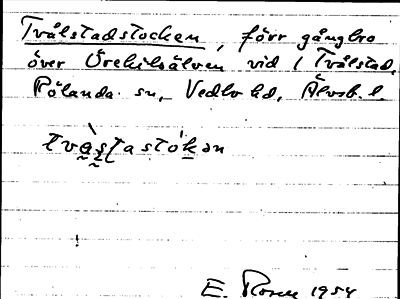 Tvålstadstocken, förr gångbro
över Örekilsälven vid 1 Tvålstad,
Rölanda sn, Vedbo hd, Älvsb. l.
E. Rosen 1954